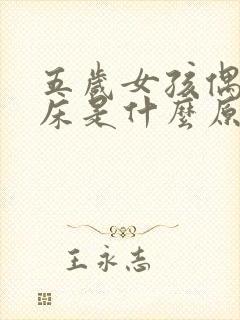 五歲女孩偶
床是什麼原
王永志